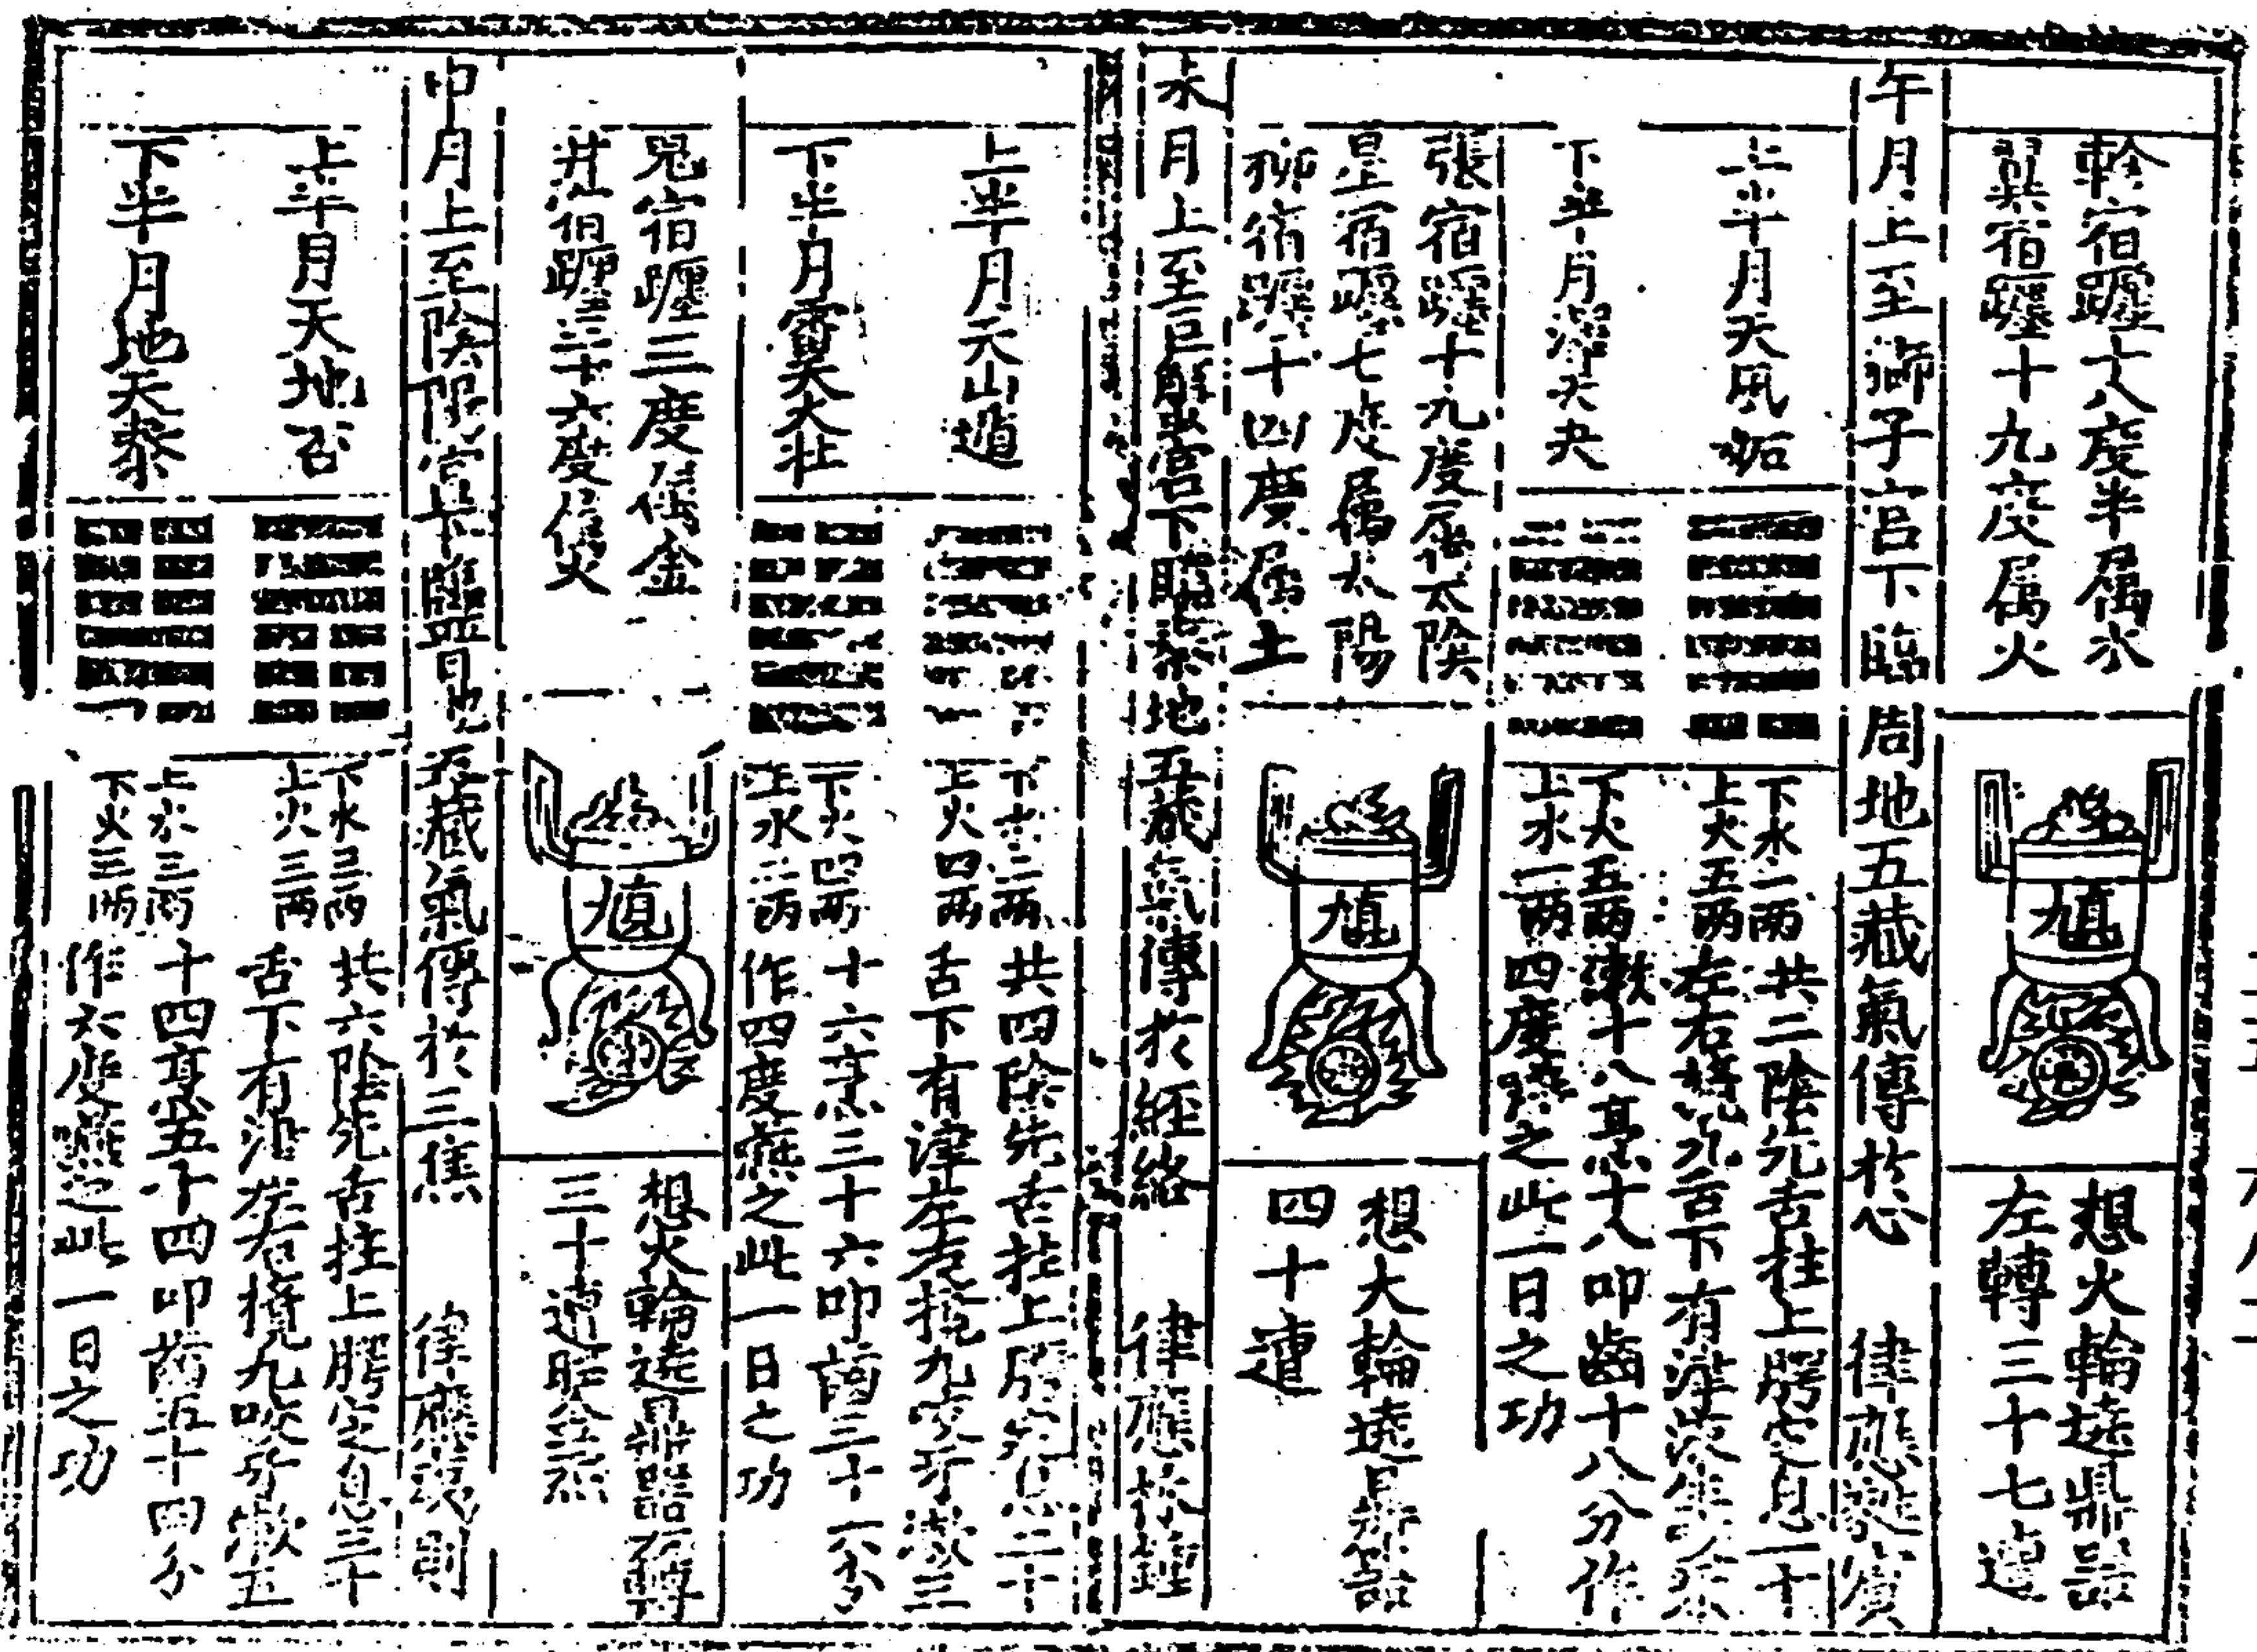 軫宿躔十八度半属水
翼宿躔十九度属火
想火輪遶鼎器
左轉三十七遭
午月上至獅子宮下臨周地五藏氣傳於心 律應蕤賓
上半月天風姤
下半月澤天夬
下水一两
上火五两
共二陰先舌拄上腭定息一十
左右攪九舌下有津液
下火五两
上水一两
漱十八息十八叩齒十八分作
四度嚥之此一日之功
張宿躔十九度属太陰
星宿躔七度属太陽
柳宿躔十四度属土
想大輪遶鼎器
四十遭
未月上至巨蟹宮下臨秦地五藏氣傳於經絡 律應林鍾
上半月天山遁
下半月雷天大壮
下水二两
上火四两
共四陰先舌拄上腭定息二十
舌下有津左右攪九咬牙漱三
下火四两
上水二两
十六息三十六叩齒三十六分
作四度嚥之此一日之功
鬼宿躔三度属金
井宿躔三十六度属火
想火輪遶鼎器右轉
三十遭
申月上至陰陽宮下臨晋地五藏氣傳於三焦 律應夷則
上半月天地否
下半月地天泰
下水三两
上火三两
共六陰先舌拄上腭定息三十
舌下有津左右攪九咬牙漱五
上水三两
下火三两
十四息五十四叩齒五十四分
作六度嚥之此一日之功